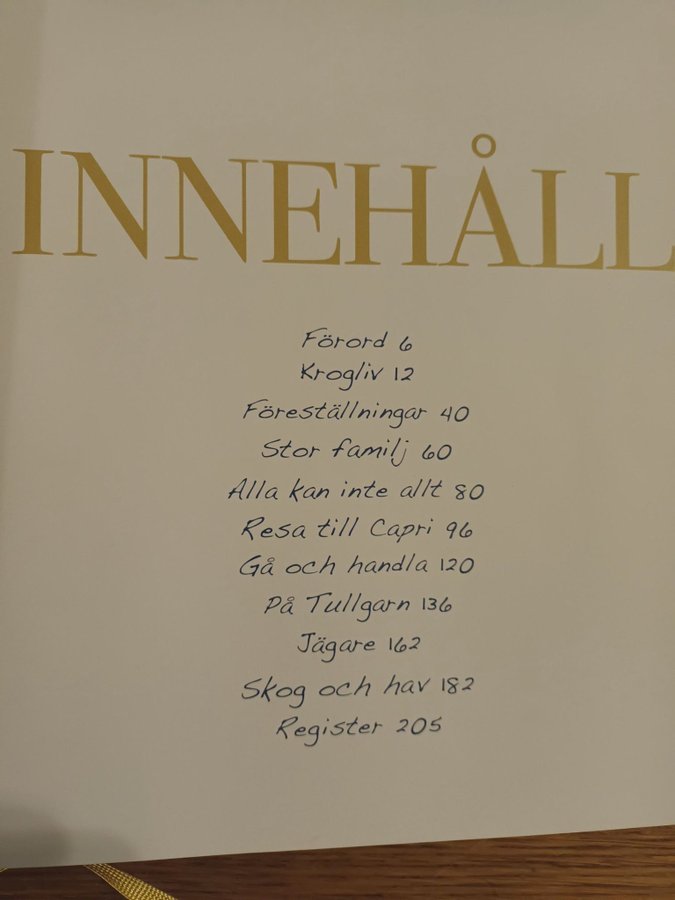 INNEHÅLL
Förord 6
Krogliv 12
Föreställningar 40
Stor familj 60
Alla kan inte allt 80
Resa till Capri 96
Gå och handla 120
På Tullgarn 136
Jägare 162
Skog och hav 182
Register 205